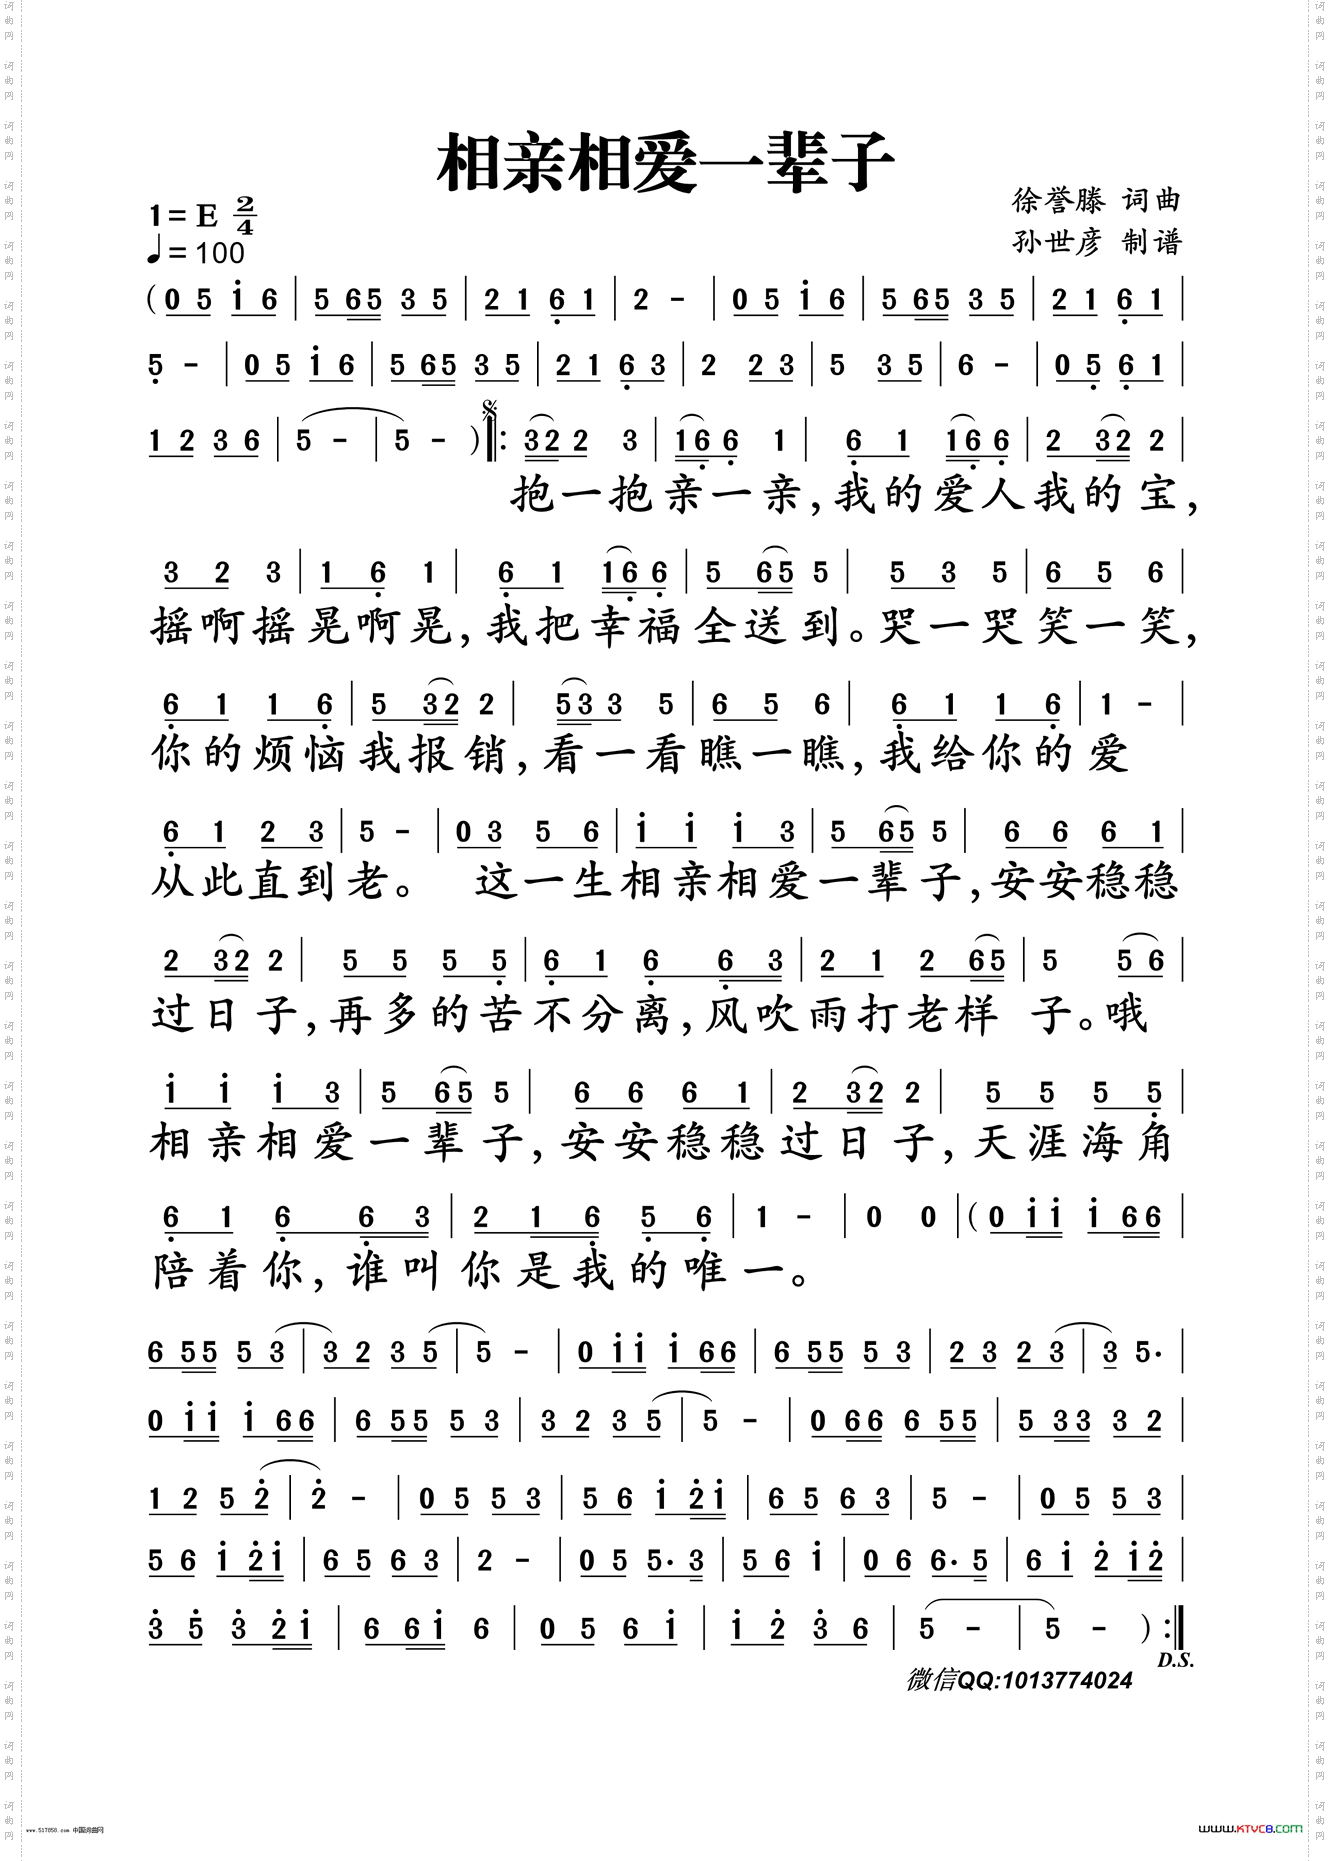 相亲相爱一辈子
1=E 2/4
徐誉滕 词曲
♩=100
孙世彦 制谱
(0 5 i 6 | 5 65 3 5 | 2 1 6 1 | 2 - | 0 5 i 6 | 5 65 3 5 | 2 1 6 1 |
5 - | 0 5 i 6 | 5 65 3 5 | 2 1 6 3 | 2 2 3 | 5 3 5 | 6 - | 0 5 6 1 |
1 2 3 6 | 5 - | 5 - ) |: 32 2 3 | 16 6 1 | 6 1 16 6 | 2 32 2 |
抱一抱亲一亲,我的爱人我的宝,
3 2 3 | 1 6 1 | 6 1 16 6 | 5 65 5 | 5 3 5 | 6 5 6 |
摇啊摇晃啊晃,我把幸福全送到。哭一哭笑一笑,
6 1 1 6 | 5 32 2 | 53 3 5 | 6 5 6 | 6 1 1 6 | 1 - |
你的烦恼我报销,看一看瞧一瞧,我给你的爱
6 1 2 3 | 5 - | 0 3 5 6 | i i i 3 | 5 65 5 | 6 6 6 1 |
从此直到老。 这一生相亲相爱一辈子,安安稳稳
2 32 2 | 5 5 5 5 | 6 1 6 6 3 | 2 1 2 65 | 5 5 6 |
过日子,再多的苦不分离,风吹雨打老样 子。哦
i i i 3 | 5 65 5 | 6 6 6 1 | 2 32 2 | 5 5 5 5 |
相亲相爱一辈子,安安稳稳过日子,天涯海角
6 1 6 6 3 | 2 1 6 5 6 | 1 - | 0 0 | (0 i i i 66 |
陪着你,谁叫你是我的唯一。
6 55 5 3 | 3 2 3 5 | 5 - | 0 i i i 66 | 6 55 5 3 | 2 3 2 3 | 3 5· |
0 i i i 66 | 6 55 5 3 | 3 2 3 5 | 5 - | 0 66 6 55 | 5 33 3 2 |
1 2 5 2 | 2 - | 0 5 5 3 | 5 6 i 2i | 6 5 6 3 | 5 - | 0 5 5 3 |
5 6 i 2i | 6 5 6 3 | 2 - | 0 5 5· 3 | 5 6 i | 0 6 6· 5 | 6 i 2 i2 |
3 5 3 2i | 6 6i 6 | 0 5 6 i | i 2 3 6 | 5 - | 5 - ) :|
D.S.
微信QQ:1013774024
www.517858.com 中国词曲网
www.KTVC8.com